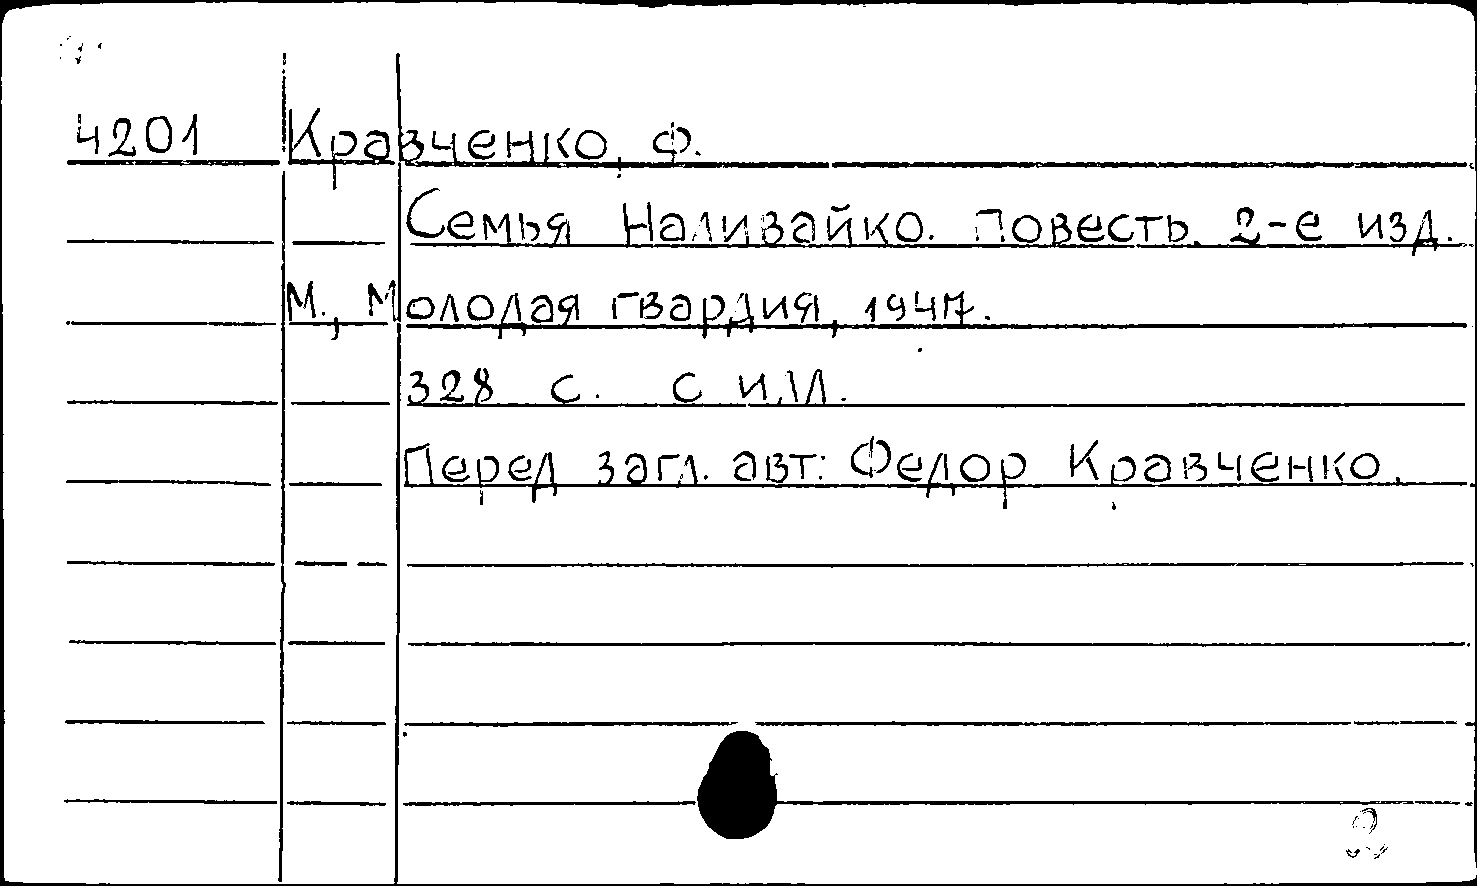 4201 Кравченко, Ф.
Семья Наливайко. Повесть. 2-е изд.
М., Молодая гвардия, 1947.
328 с. с илл.
Перед загл. авт: Федор Кравченко.
2